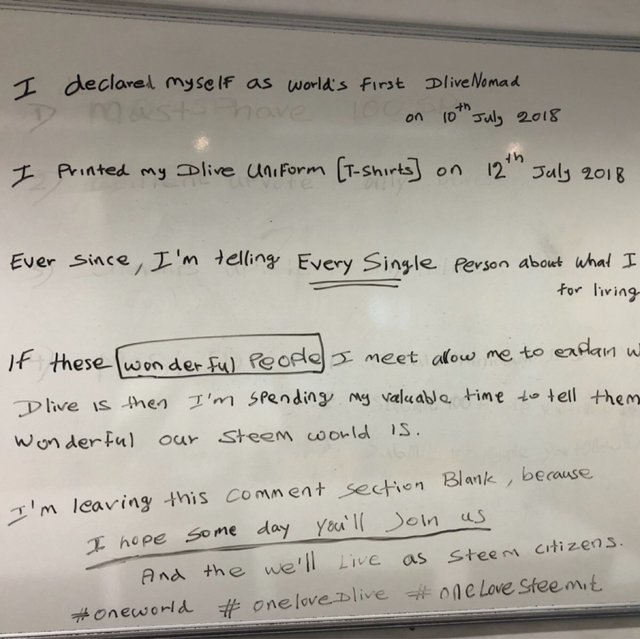 I declared myself as world's First DliveNomad
on 10th July 2018
I Printed my Dlive Uniform [T-Shirts] on 12th July 2018
Ever since, I'm telling Every Single Person about what I
for living
If these wonderful People I meet allow me to explain w
Dlive is then I'm spending my valuable time to tell them
wonderful our steem world is.
I'm leaving this comment section Blank, because
I hope some day you'll Join us
And the we'll Live as steem citizens.
#oneworld # oneloveDlive # oneLoveSteemit